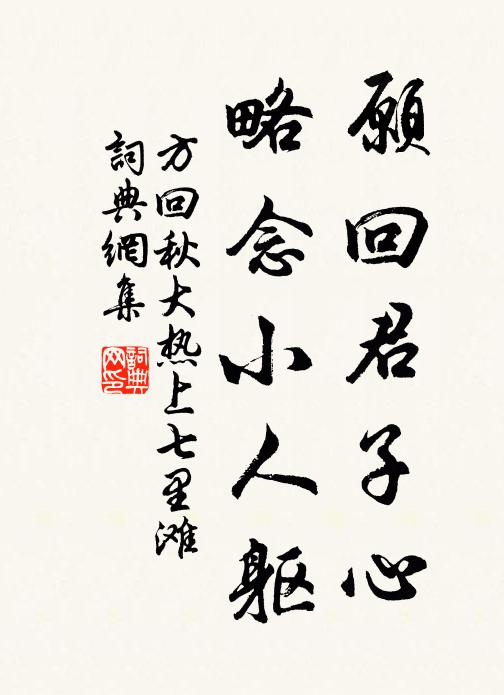 願回君子心
略念小人軀
方回秋大热上七里滩
詞典網集
詞典网印